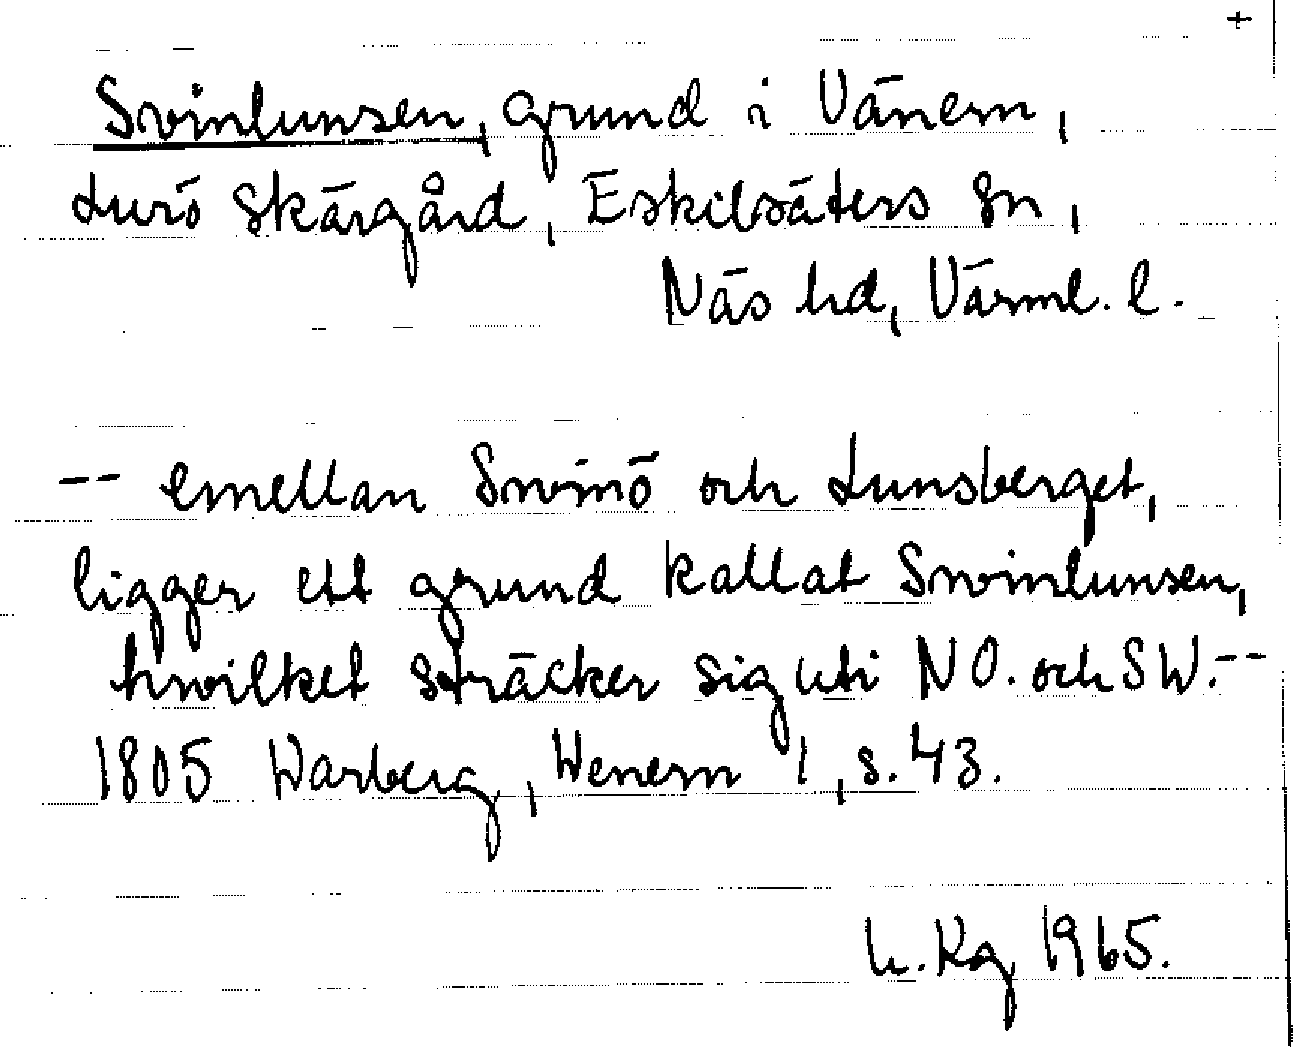 +
Svinlunsen, grund i Vänern,
Lurö skärgård, Eskilsäters sn,
Näs hd, Värml. l.
-- emellan Svinö och Lunsberget,
ligger ett grund kallat Svinlunsen,
hwilket sträcker sig uti NO. och SW.--
1805 Warberg, Wenern 1, s. 43.
h. Kg 1965.